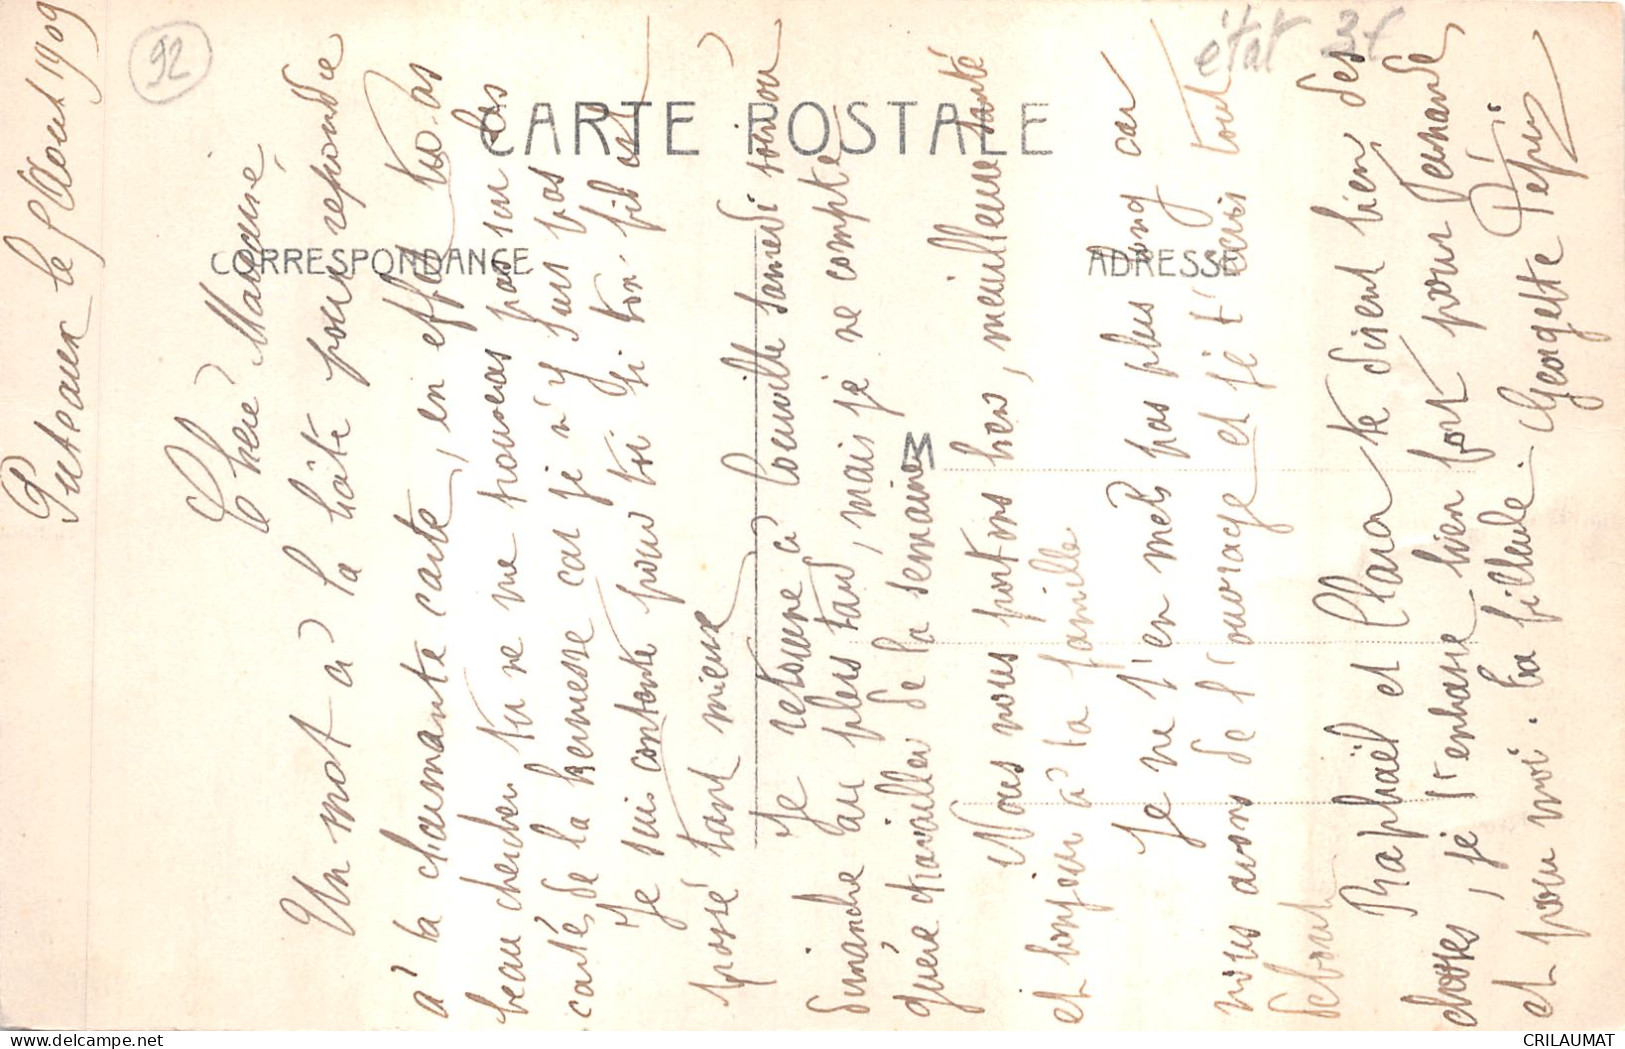 CARTE POSTALE
CORRESPONDANCE
ADRESSE
92
état 3f
M
Puteaux le Aout 1909
Chère Marraine
Un mot à la hâte pour repondre
à ta charmante carte, en effet tu as
beau chercher tu ne me trouveras pas sur les
cartes de la kermesse car je n'y suis pas
Je suis contente pour toi si ton fils est
posé tant mieux
Je retourne à Louville samedi soir ou
dimanche au plus tard, mais je ne compte
guère travailler de la semaine
Nous nous portons bien, meilleure santé
et bonjour à ta famille
Je ne t'en mets pas plus long car
nous avons de l'ouvrage et je t'écris tout
debout
Raphaël et Clara te disent bien des
choses, je t'embrasse bien fort pour Fernande
et pour moi. Ta filleule. Georgette Pépin
CRILAUMAT